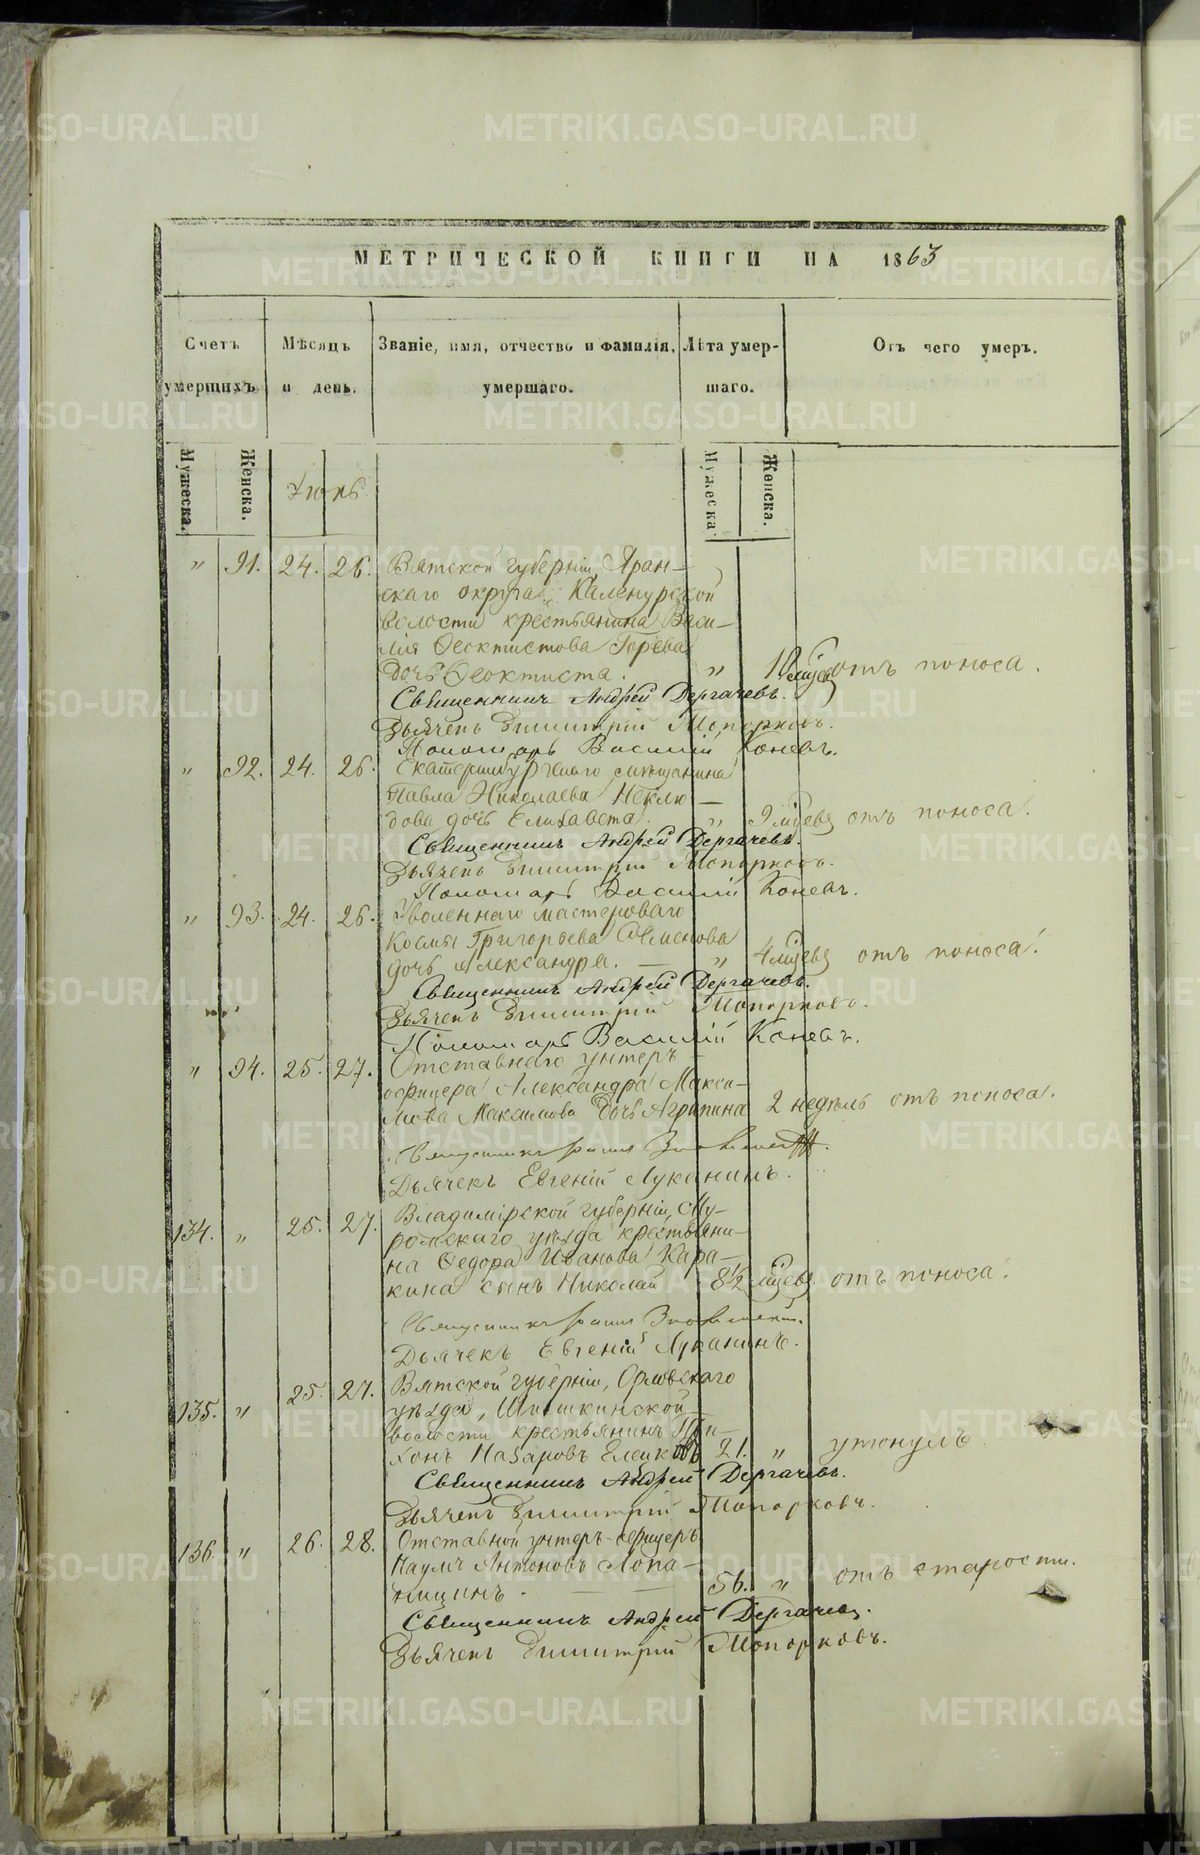 МЕТРИЧЕСКОЙ КНИГИ НА 1863
Счетъ умершихъ.
Мѣсяцъ и день.
Званіе, имя, отчество и фамилія, умершаго.
Лѣта умершаго.
Отъ чего умеръ.
Мужеска. Женска. Іюнь Мужеска. Женска.
" 91. 24. 26. Вятской губерніи, Яран-
скаго округа,
волости крестьянина Васи-
лія Феоктистова Горева
дочь Феоктиста. " отъ поноса.
Священникъ Андрей Дергачевъ.
Дьячекъ Димитрій Топорковъ.
Пономарь Василій Коневъ.
" 92. 24. 26. Екатеринбургскаго мѣщанина
Павла Николаева Неклю-
дова дочь Елизавета. " 9 мѣсяцевъ отъ поноса.
Священникъ Андрей Дергачевъ.
Дьячекъ Димитрій Топорковъ.
Пономарь Василій Коневъ.
" 93. 24. 26. Уволеннаго мастероваго
Космы Григорьева Семенова
дочь Александра. — " 4 мѣсяцевъ отъ поноса.
Священникъ Андрей Дергачевъ.
Дьячекъ Димитрій Топорковъ.
Пономарь Василій Коневъ.
" 94. 25. 27. Отставнаго унтеръ-
офицера Александра Макси-
мова Максимова дочь Агрипина 2 недѣль отъ поноса.
Священникъ
Дьячекъ Евгеній Луканинъ.
134. " 25. 27. Владимірской губерніи, Му-
ромскаго уѣзда крестьяни-
на Федора Иванова Кара-
кина сынъ Николай 8½ мѣсяцевъ отъ поноса.
Священникъ
Дьячекъ Евгеній Луканинъ.
135. " 25. 27. Вятской губерніи, Орловскаго
уѣзда,
волости крестьянинъ Три-
фонъ Назаровъ 21. " утонулъ
Священникъ Андрей Дергачевъ.
Дьячекъ Димитрій Топорковъ.
136. " 26. 28. Отставной унтеръ-офицеръ
Наумъ Антоновъ Лопа-
ницинъ. — — 56. " отъ старости.
Священникъ Андрей Дергачевъ.
Дьячекъ Димитрій Топорковъ.
METRIKI.GASO-URAL.RU